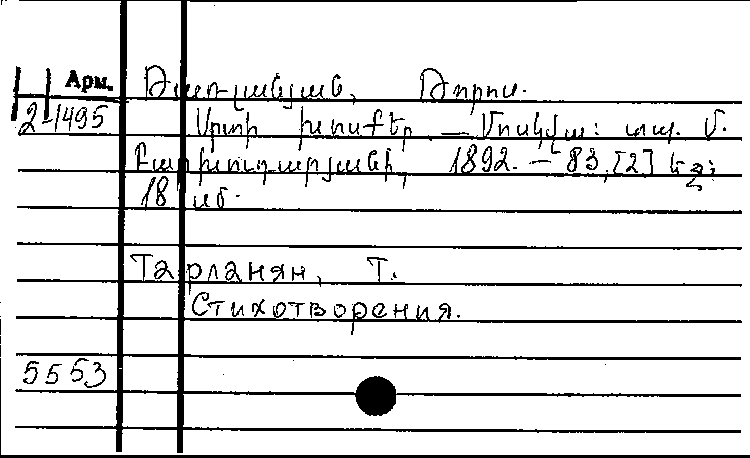 Арм. Թառլանյան, Թորոս.
2-1495 Սրտի խոսքեր. — Մոսկվա: տպ. Մ.
Բարխուդարյանի, 1892. — 83, [2] էջ:
18 սմ.
Тарланян, Т.
Стихотворения.
5553